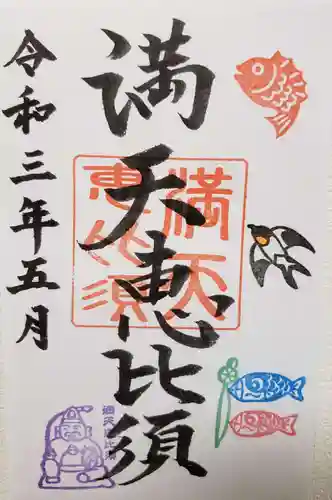 満天恵比須
令和三年五月
満天
恵比須
満天恵比須